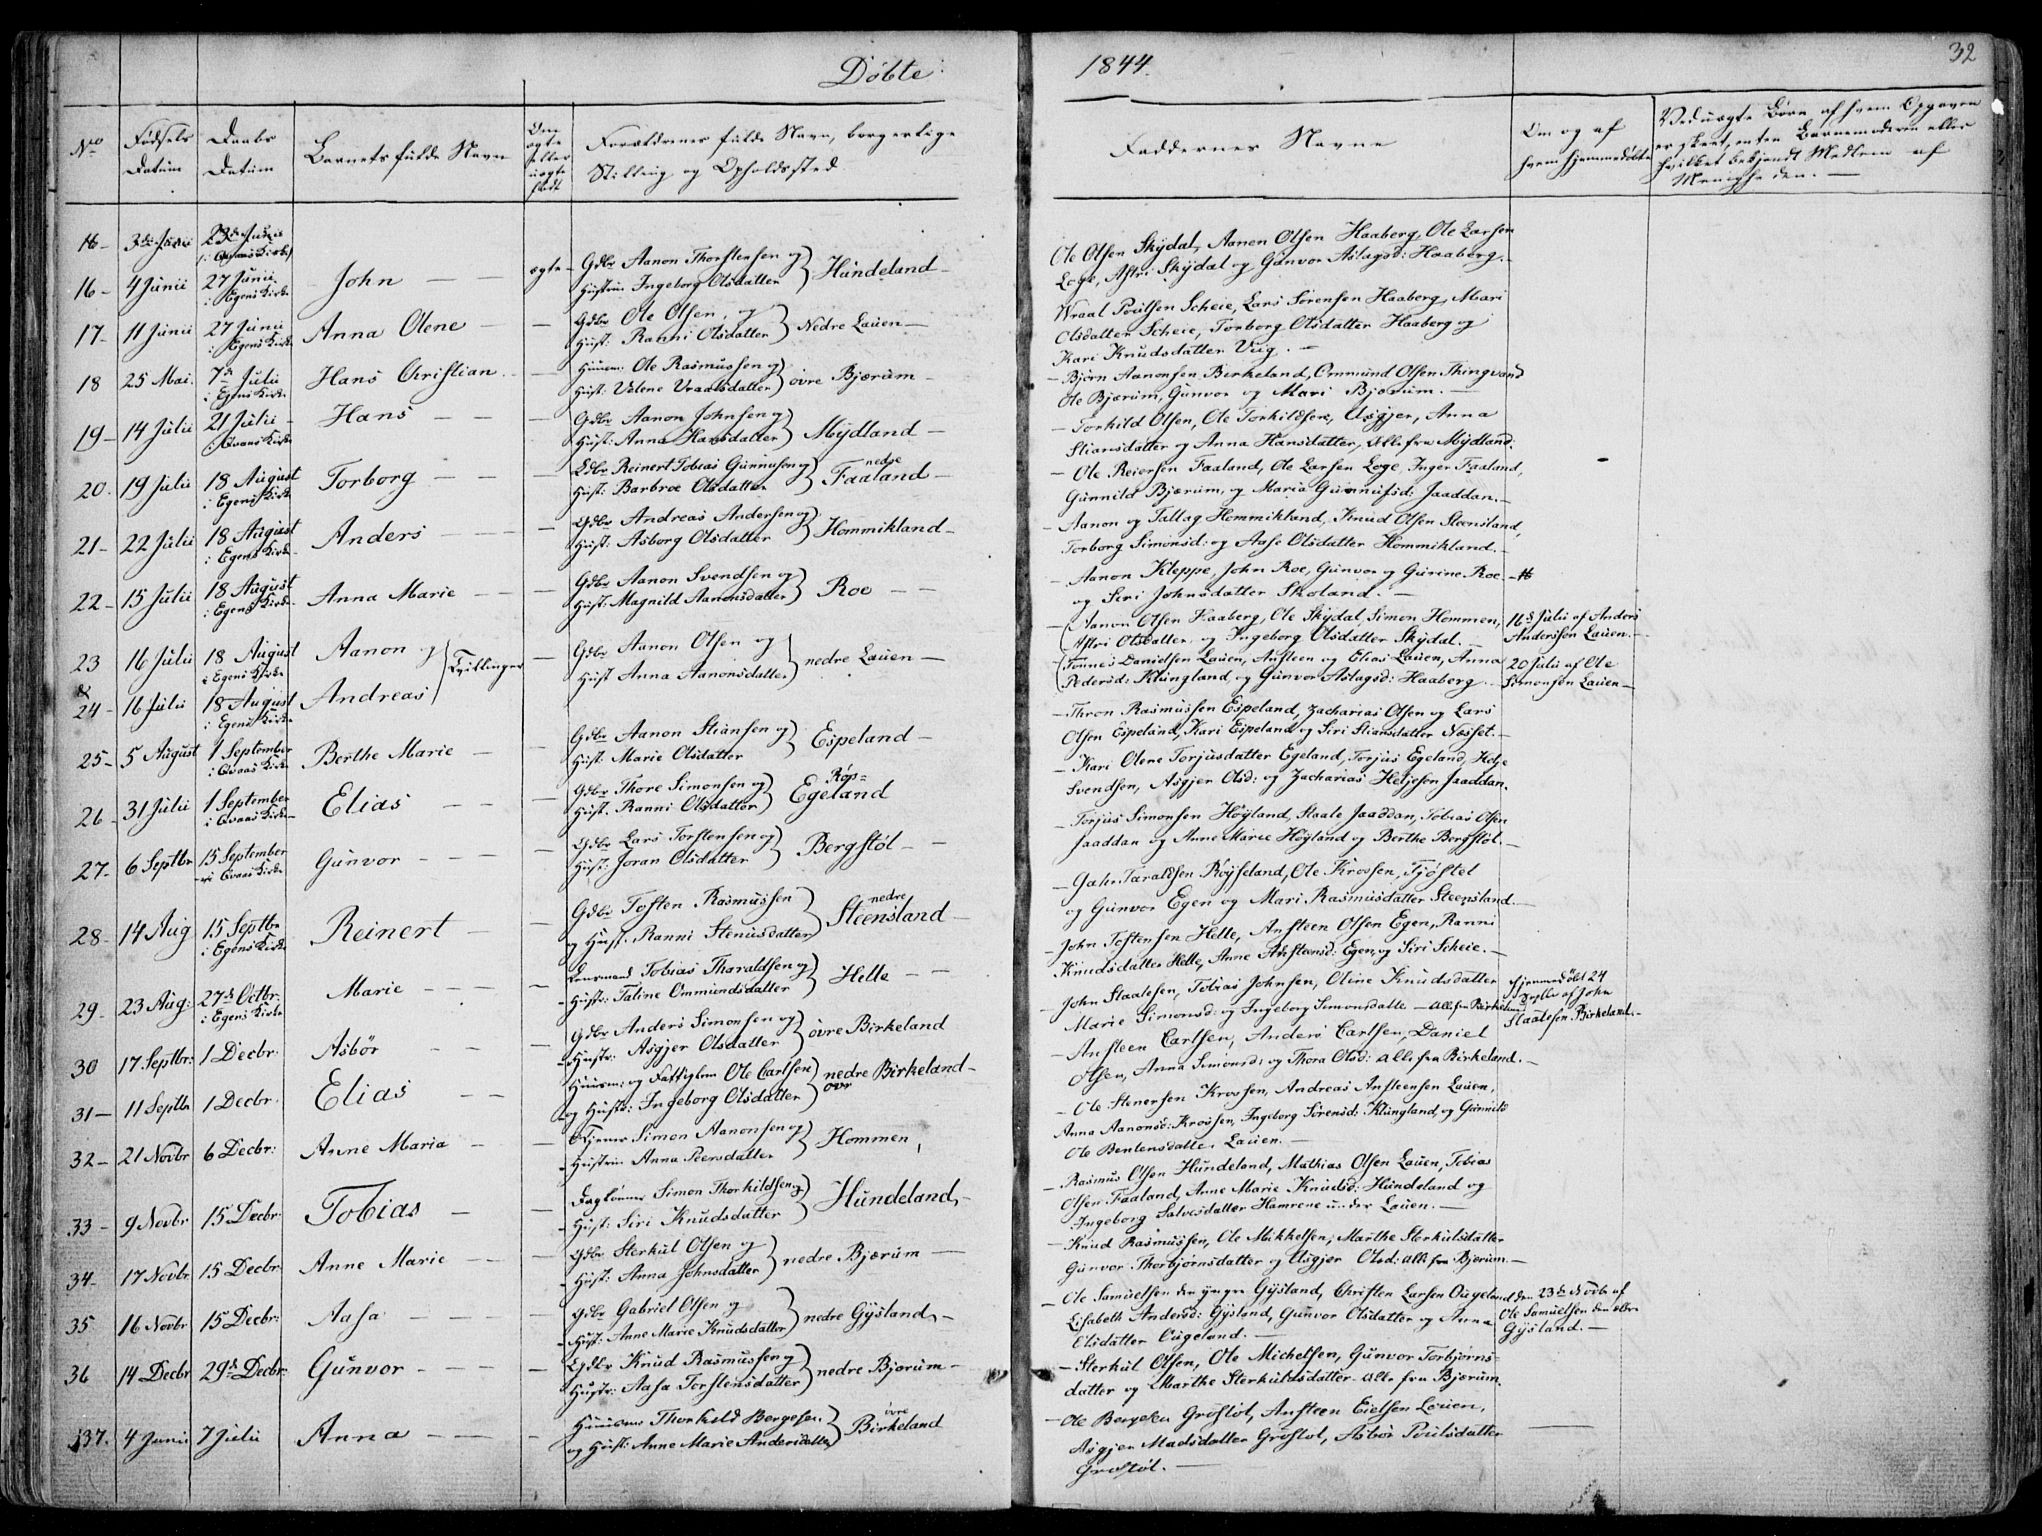 Döbte:
1844.
32
No
Födsels Datum
Daabs Datum
Barnets fulde Navn
Om ægte eller uægte födt
Forældrenes fulde Navn, borgerlige Stilling og Opholdssted.
Faddernes Navne
Om og af hvem hjemmedöbte
Ved uægte Börn af hvem Opgaven er skeet, enten Barnemoderen eller hvilket bekjendt Medlem af Menigheden. —
16 - 3de Junii 23de Junii
i Qvaas Kirke
16 - 4 Junii 27 Junii i Egens Kirke John — ægte - Gdbr Aanon Thorstensen og
Hustrue Ingeborg Olsdatter } Hundeland -
17 - 11 Junii 27 Junii i Egens Kirke Anna Olene — Gdbr Ole Olsen, og
Hust. Ranni Olsdatter } Nedre Lauen -
18 25 Mai. 7de Julii i Egens Kirke Hans Christian - Huusm: Ole Rasmussen og
Hust: Valene Vraalsdatter } övre Bjærum -
19 - 14 Julii 21 Julii i Qvaas Kirke Hans — Gdbr Aanon Johnsen og
Hust: Anna Hansdatter } Mydland -
20. 19 Julii 18 August i Egens Kirke Torborg — Gdbr Reinert Tobias Gunnufsen og
Hust: Barbroe Olsdatter } nedre Faaland -
21 - 22 Julii 18 August i Egens Kirke Anders — Gdbr Andreas Andersen og
Hust: Asborg Olsdatter } Hommikland -
22 - 15 Julii 18 August i Egens Kirke Anna Marie — Gdbr Aanon Svendsen og
Hust: Magnild Aanonsdatter } Roe —
23 16 Julii 18 August i Egens Kirke Aanon og } Tvillinger — Gdbr Aanon Olsen og
& 24 - 16 Julii 18 August i Egens Kirke Andreas Hust Anna Aanonsdatter } nedre Lauen -
25 - 5 August 1 September i Qvaas Kirke Berthe Marie — Gdbr Aanon Stiansen og
Hust: Marie Olsdatter } Espeland -
26 - 31 Julii 1 September i Qvaas Kirke Elias — Gdbr Thore Simonsen og
Hust. Ranni Olsdatter } Röp= Egeland
27 - 6 Septbr 15 September i Qvaas Kirke Gunvor — Gdbr Lars Torstensen og
Hust: Joran Olsdatter } Bergstöl —
28 - 14 Aug 15 Septbr i Egens Kirke Reinert — Gdbr Tosten Rasmussen
og Hust. Ranni Stenusdatter } nedre Steensland -
29 - 23 Aug: 27de Octbr: i Egens Kirke Marie — Lensmand Tobias Tharaldsen og
Hustr: Taline Ommundsdatter } Helle —
30 17 Septbr: 1 Decbr: Asbör — Gdbr Anders Simonsen og
Hustr: Asgjer Olsdatter } övre Birkeland
31 — 11 Septbr 1 Decbr. Elias — Huusm: og Fattiglem Ole Carlsen
og Hustr: Ingeborg Olsdatter } nedre Birkeland -
övr
32 - 21 Novbr 6 Decbr: Anne Maria — Tjener Simon Aanonsen og
Hustrue Anna Peersdatter } Hommen,
33 - 9 Novbr 15 Decbr: Tobias — Daglönner Simon Thorkildsen og
Hust: Siri Knudsdatter } Hundeland, -
34 - 17 Novbr 15 Decbr: Anne Marie — Gdbr Sterkul Olsen og
Hust: Anna Johnsdatter } nedre Bjærum —
35 16 Novbr 15 Decbr: Aasa — Gdbr Gabriel Olsen og
Hust: Anne Marie Knudsdatter } nedre Gysland, -
36 14 Decbr 29de Decbr: Gunvor — Gdbr Knud Rasmussen og
Hustr: Aasa Torstensdatter } nedre Bjærum -
37. 4 Junii 7 Julii Anna — Huusm: Thorkeld Bergesen.
og Hust: Anne Marie Andersdatter } övre Birkeland
Ole Olsen Skydal, Aanen Olsen Haaberg, Ole Larsen
Loge, Astri Skydal og Gunvor Aslagsd: Haaberg. -
Wraal Poulsen Scheie, Lars Sörensen Haaberg, Mari
Olsdatter Scheie, Torborg Olsdatter Haaberg og
Kari Knudsdatter Uug. -
- Björn Aanonsen Birkeland, Ommund Olsen Thingvand
Ole Bjærum, Gunvor og Mari Bjærum. —
- Torkild Olsen, Ole Torkildsen, Asgjer, Anna
Stiansdatter og Anna Hansdatter, Alle fra Mydland.
- Ole Reiersen Faaland, Ole Larsen Loge, Inger Faaland,
Gunnild Bjærum, og Maria Gunnufsd: Jaaddan. -
- Aanon og Tallag Hommikland, Knud Olsen Steensland,
Torborg Simonsd: og Aase Olsdatter Hommikland. -
- Aanon Kleppe, John Roe, Gunvor og Gurine Roe
og Siri Johnsdatter Skoland. -
Aanon Olsen Haaberg, Ole Skydal, Simon Hommen, 16de Julii af Anders
Astri Olsdatter og Ingeborg Olsdatter Skydal. — Anderssen Lauen. -
Tönnes Danielsen Lauen, Ansteen og Elias Lauen, Anna 20 Julii af Ole
Pedersd: Klungland, og Gunvor Aslagsd: Haaberg. Simonsen Lauen -
- Thron Rasmussen Espeland, Zacharias Olsen og Lars
Olsen Espeland, Kari Espeland og Siri Stiansdatter Næsset. -
- Kari Olene Torjusdatter Egeland, Torjus Egeland, Helje
Svendsen, Asgjer Olsd: og Zacharias Heljesen Jaaddan.
- Torjus Simonsen Höyland, Staale Jaaddan, Tobias Olsen
Jaaddan og Anne Marie Höyland og Berthe Bergstöl. -
- Jahn Taraldsen Röysseland, Ole Krossen, Tjöstel
og Gunvor Egen og Mari Rasmusdatter Steensland. -
John Tostensen Helle, Ansteen Olsen Egen, Ranni
Knudsdatter Helle, Anne Ansteensd: Egen, og Siri Scheie. -
John Staalesen, Tobias Johnsen, Oline Knudsdatter hjemmedöbt 24
Marie Simonsd: og Ingeborg Simonsdatter - alle fra Birkeland Septbr af John
Staalesen Birkeland. -
- Ansteen Carlsen, Anders Carlsen, Daniel
Olsen, Anna Simonsd: og Thora Olsd: alle fra Birkeland. -
- Ole Stenersen Krossen, Andreas Ansteensen Lauen,
Anna Aanonsd: Krossen, Ingeborg Sörensd: Klungland, og Gunnild
Ole Bentensdatter Lauen. -
- Rasmus Olsen Hundeland, Mathias Olsen Lauen, Tobias
Olsen Faaland, Anne Marie Knudsd: Hundeland og
Ingeborg Salvesdatter Hamrene under Lauen. -
- Knud Rasmussen, Ole Mikkelsen, Marthe Sterkulsdatter
Gunvor Thorbjörnsdatter og Asgjer Olsd: alle fra Bjærum -
- Ole Samuelsen den yngre Gysland, Christen Larsen Ougeland den 23de Novbr af
Elisabeth Andersd: Gysland, Gunvor Olsdatter og Anna Ole Samuelsen den ældre
Elsdatter Ougeland. - Gysland. -
- Sterkul Olsen, Ole Michelsen, Gunvor Torbjörns=
datter og Marthe Sterkuldsdatter - alle fra Bjærum.
- Ole Bergesen Grostöl, Ansteen Eielsen Lauen,
Asgjer Madsdatter Grostöl, Asbör Poulsdatter
Grostöl. -